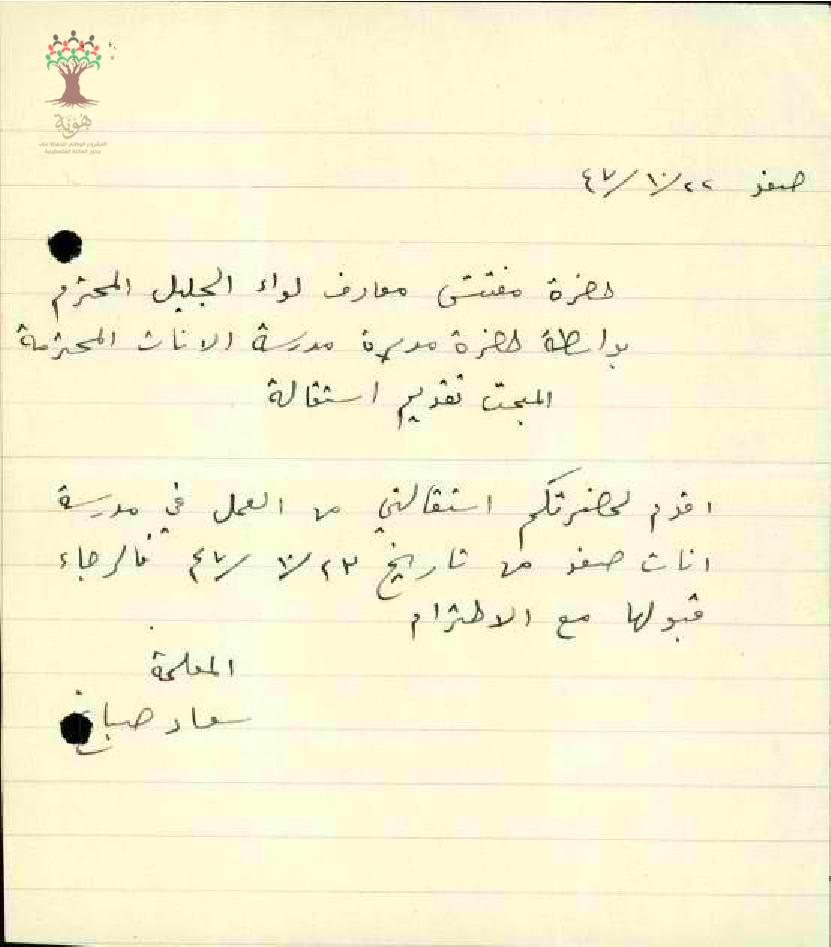 هوية
المشروع الوطني للحفاظ على
جذور العائلة الفلسطينية
صفد ٢٢/١٠/٤٧
حضرة مفتش معارف لواء الجليل المحترم
بواسطة حضرة مديرة مدرسة الاناث المحترمة
المبحث تقديم استقالة
اقدم لحضرتكم استقالتي من العمل في مدرسة
اناث صفد من تاريخ ٢٣/١٠/٤٧ فالرجاء
قبولها مع الاحترام
المعلمة
سعاد صباغ